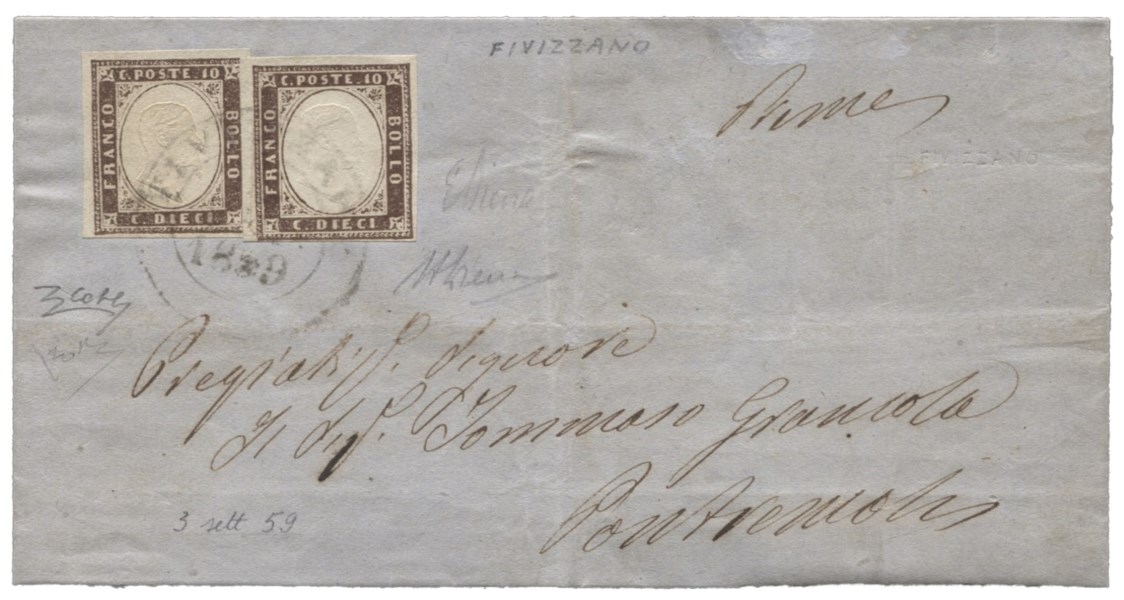 FIVIZZANO
C. POSTE. 10
FRANCO
BOLLO
C. DIECI
C. POSTE. 10
FRANCO
BOLLO
C. DIECI
FIVIZZANO
1859
Pregiatis. Signore
Il Sigr. Tommaso Grancola
Pontremoli
3 sett 59